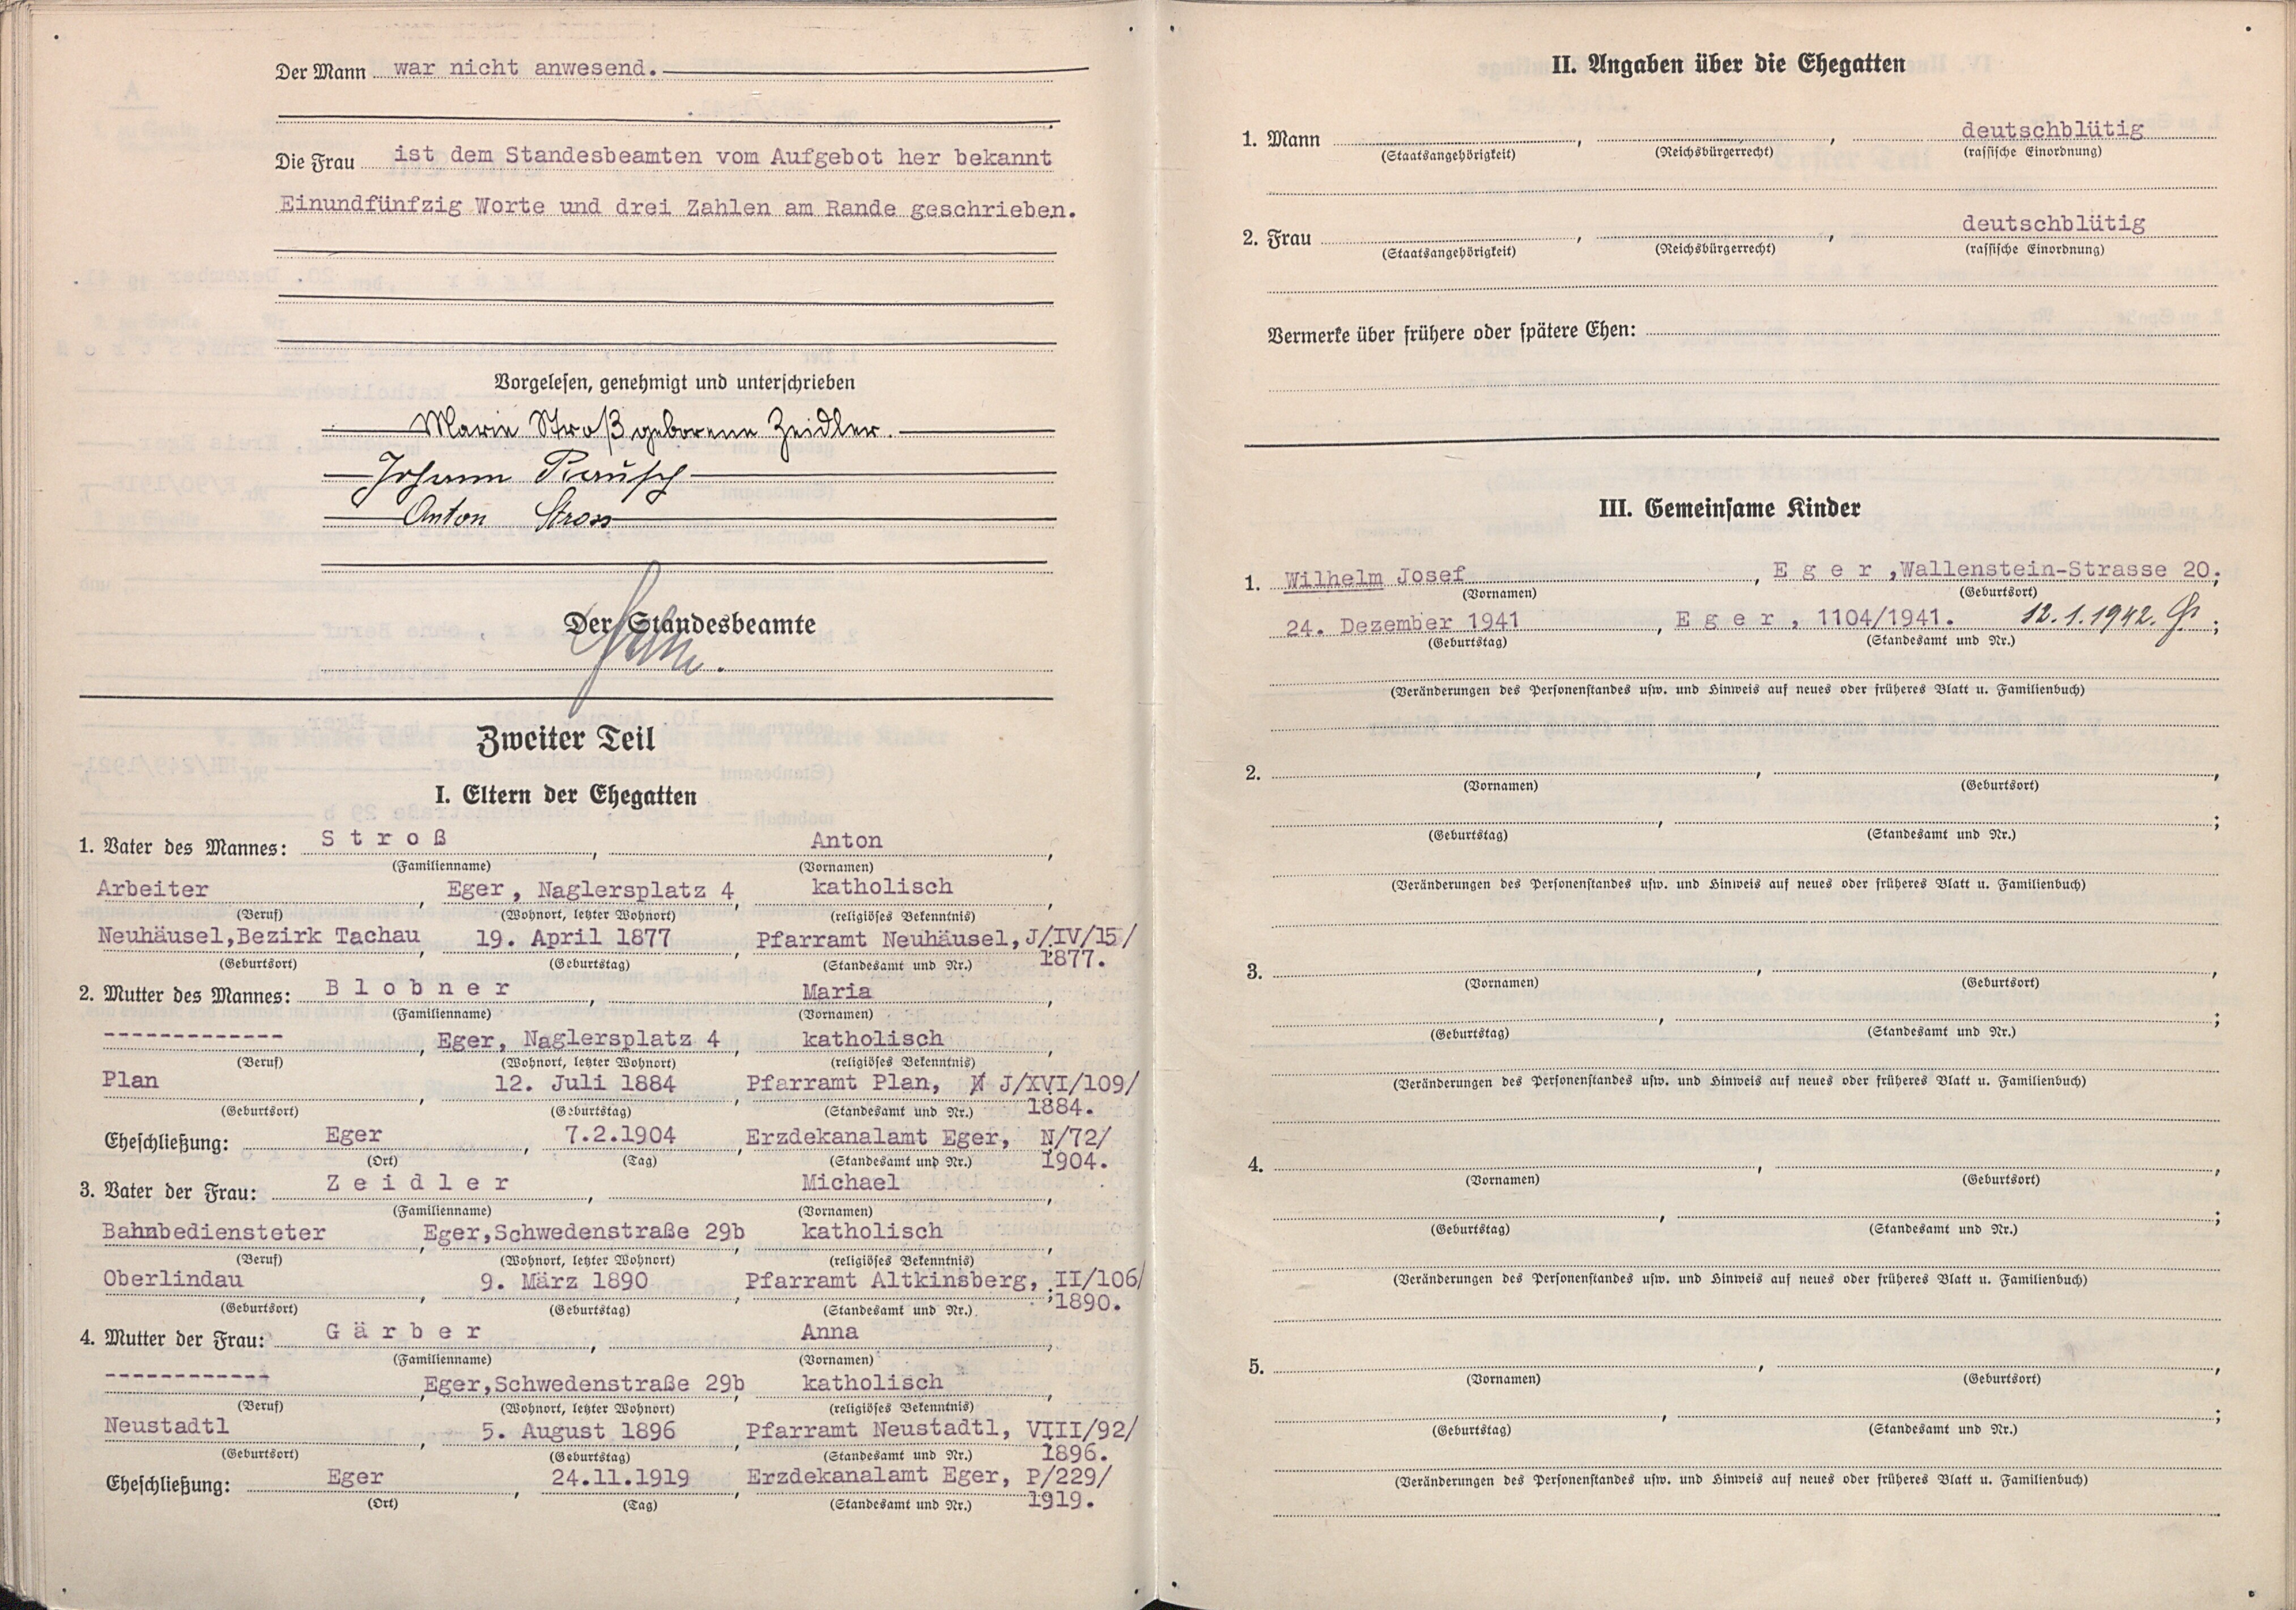 Der Mann war nicht anwesend.
Die Frau ist dem Standesbeamten vom Aufgebot her bekannt
Einundfünfzig Worte und drei Zahlen am Rande geschrieben.
Vorgelesen, genehmigt und unterschrieben
Marie Stroß geborene Zeidler.
Johann Rausch
Anton Stross
Der Standesbeamte
Zweiter Teil
I. Eltern der Ehegatten
1. Vater des Mannes: Stroß, Anton,
(Familienname) (Vornamen)
Arbeiter, Eger, Naglersplatz 4, katholisch,
(Beruf) (Wohnort, letzter Wohnort) (religiöses Bekenntnis)
Neuhäusel, Bezirk Tachau 19. April 1877 Pfarramt Neuhäusel, J/IV/15/
1877.
(Geburtsort) (Geburtstag) (Standesamt und Nr.)
2. Mutter des Mannes: Blobner, Maria,
(Familienname) (Vornamen)
-------------, Eger, Naglersplatz 4, katholisch,
(Beruf) (Wohnort, letzter Wohnort) (religiöses Bekenntnis)
Plan, 12. Juli 1884, Pfarramt Plan, J/XVI/109/
1884.
(Geburtsort) (Geburtstag) (Standesamt und Nr.)
Eheschließung: Eger, 7.2.1904, Erzdekanalamt Eger, N/72/
1904.
(Ort) (Tag) (Standesamt und Nr.)
3. Vater der Frau: Zeidler, Michael,
(Familienname) (Vornamen)
Bahnbediensteter, Eger, Schwedenstraße 29b, katholisch,
(Beruf) (Wohnort, letzter Wohnort) (religiöses Bekenntnis)
Oberlindau, 9. März 1890, Pfarramt Altkinsberg, II/106/
1890.
(Geburtsort) (Geburtstag) (Standesamt und Nr.)
4. Mutter der Frau: Gärber, Anna,
(Familienname) (Vornamen)
------------, Eger, Schwedenstraße 29b, katholisch,
(Beruf) (Wohnort, letzter Wohnort) (religiöses Bekenntnis)
Neustadtl, 5. August 1896, Pfarramt Neustadtl, VIII/92/
1896.
(Geburtsort) (Geburtstag) (Standesamt und Nr.)
Eheschließung: Eger, 24.11.1919, Erzdekanalamt Eger, P/229/
1919.
(Ort) (Tag) (Standesamt und Nr.)
II. Angaben über die Ehegatten
1. Mann, , deutschblütig
(Staatsangehörigkeit) (Reichsbürgerrecht) (rassische Einordnung)
2. Frau, , deutschblütig
(Staatsangehörigkeit) (Reichsbürgerrecht) (rassische Einordnung)
Vermerke über frühere oder spätere Ehen:
III. Gemeinsame Kinder
1. Wilhelm Josef, Eger, Wallenstein-Strasse 20,
(Vornamen) (Geburtsort)
24. Dezember 1941, Eger, 1104/1941. 12.1.1942. ;
(Geburtstag) (Standesamt und Nr.)
(Veränderungen des Personenstandes usw. und Hinweis auf neues oder früheres Blatt u. Familienbuch)
2. , ,
(Vornamen) (Geburtsort)
, ;
(Geburtstag) (Standesamt und Nr.)
(Veränderungen des Personenstandes usw. und Hinweis auf neues oder früheres Blatt u. Familienbuch)
3. , ,
(Vornamen) (Geburtsort)
, ;
(Geburtstag) (Standesamt und Nr.)
(Veränderungen des Personenstandes usw. und Hinweis auf neues oder früheres Blatt u. Familienbuch)
4. , ,
(Vornamen) (Geburtsort)
, ;
(Geburtstag) (Standesamt und Nr.)
(Veränderungen des Personenstandes usw. und Hinweis auf neues oder früheres Blatt u. Familienbuch)
5. , ,
(Vornamen) (Geburtsort)
, ;
(Geburtstag) (Standesamt und Nr.)
(Veränderungen des Personenstandes usw. und Hinweis auf neues oder früheres Blatt u. Familienbuch)